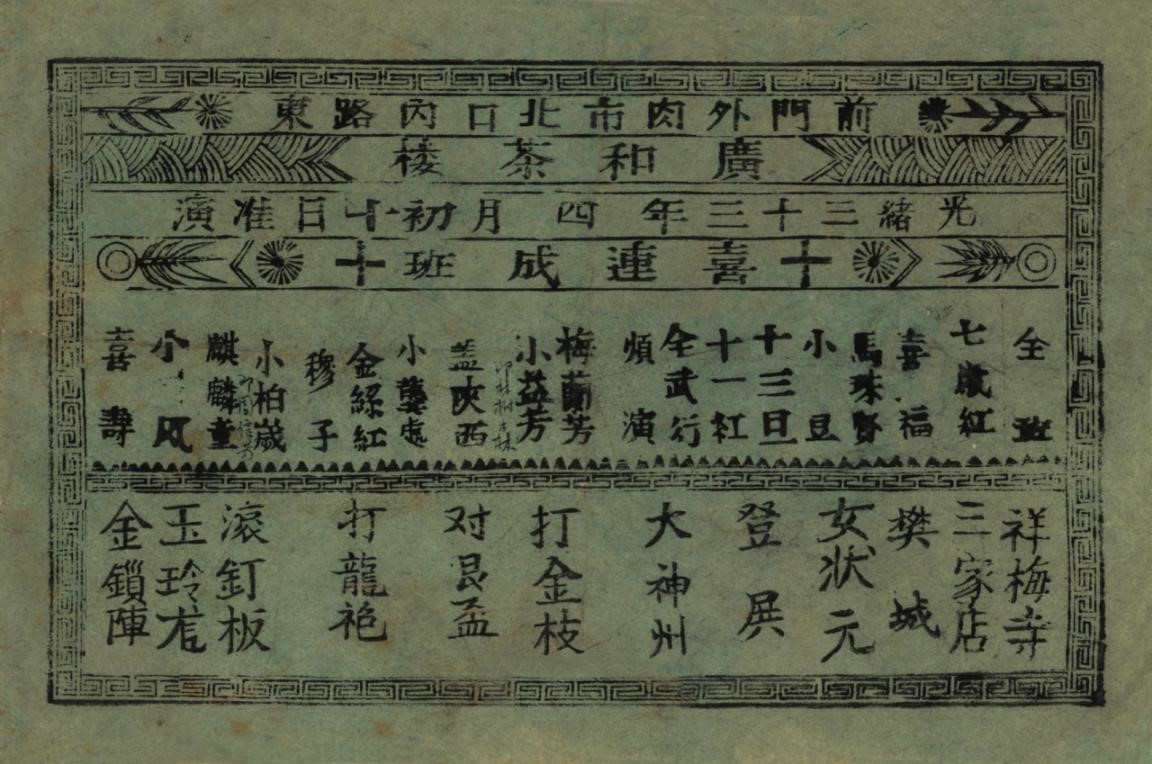 前門外肉市北口內路東
廣和茶樓
光緒三十三年四月初十日准演
十喜連成班十
全班
七歲紅
喜福
馬珠賢
小豆
十三旦
十一紅
全武行
煩演
梅蘭芳
小益芳
盖陝西
小龔處
金絲紅
穆子
小柏崴
麒麟童
小風
喜壽
祥梅寺
三家店
樊城
女狀元
登
大神州
打金枝
对艮盃
打龍袍
滾釘板
玉玲
金鎖陣